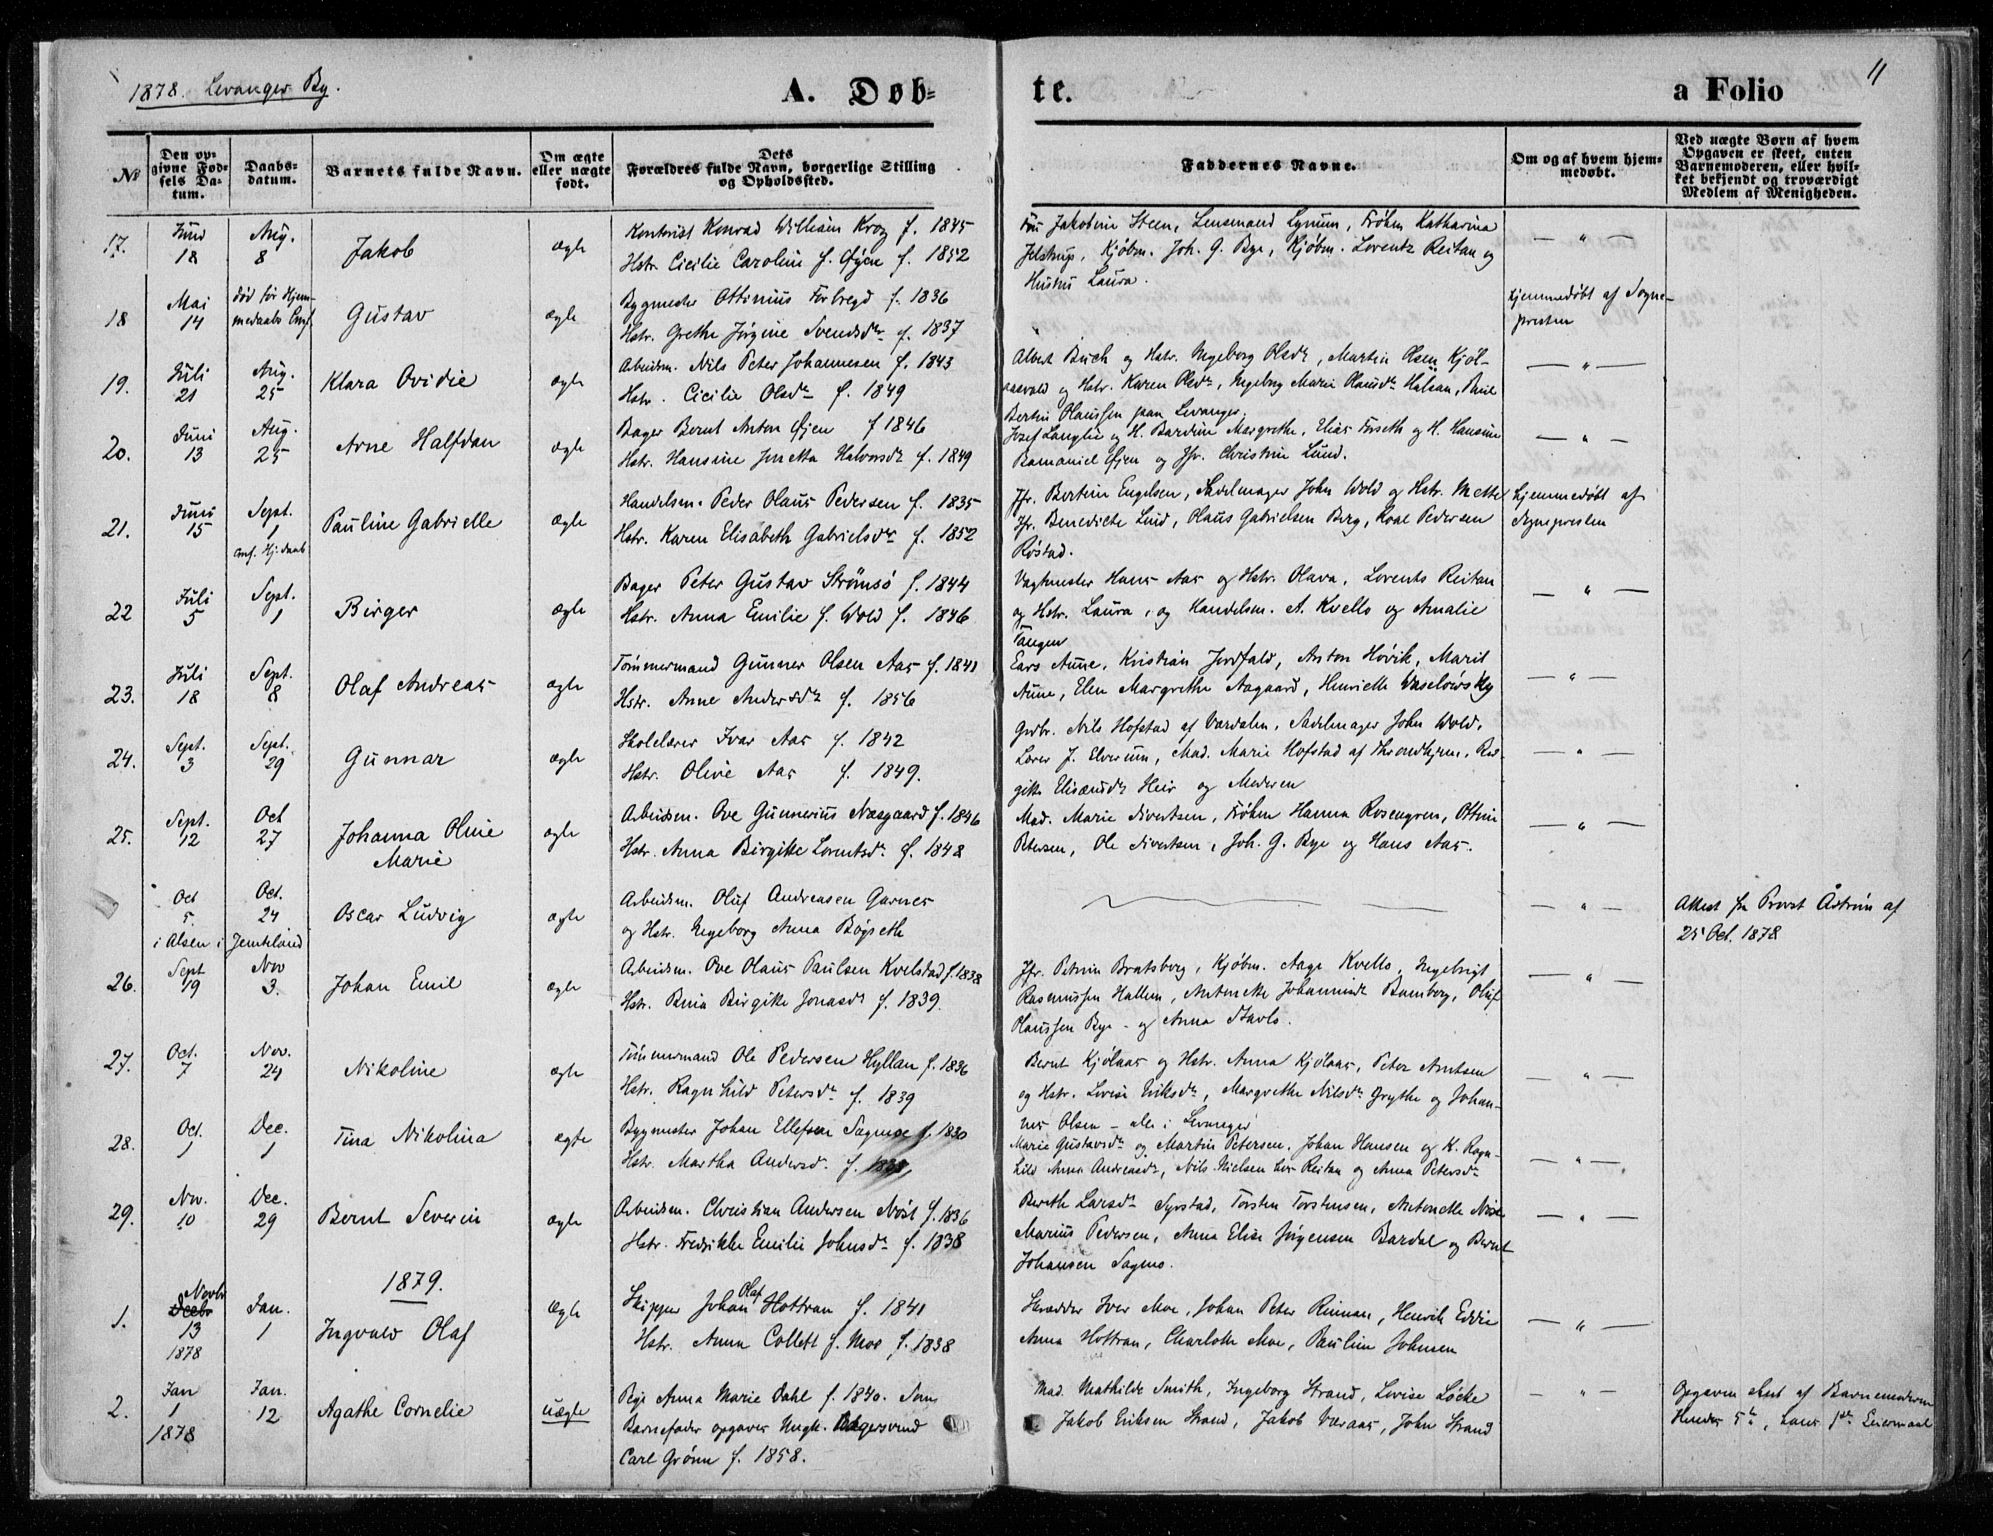 1878. Levanger By.
A. Døb-
te.
a Folio
11
No
Den op-
givne Fød-
sels Da-
tum.
Daabs-
datum.
Barnets fulde Navn.
Om ægte
eller uægte
født.
Dets
Forældres fulde Navn, borgerlige Stilling
og Opholdssted.
Faddernes Navne.
Om og af hvem hjem-
medøbt.
Ved uægte Børn af hvem
Opgaven er skeet, enten
Barnemoderen, eller hvil-
ket bekjendt og troværdigt
Medlem af Menigheden.
17. Juni 18 Aug. 8 Jakob ægte
Kontorist Konrad William Krog f. 1845
Hstr. Cicilie Caroline f. Øyen f. 1852
Fru Jakobine Steen, Lensmand Lynum, Frøkn Katharina
Jelstrup, Kjøbm. Joh. G. Bye, Kjøbm. Lorentz Reitan og
Hustru Laura.
— " —
18 Mai 14 død før Hjem-
medaabs Conf. Gustav ægte
Bygmester Ottinius Forbregd f. 1836
Hstr. Grethe Jørgine Svendsdr f. 1837
hjemmedøbt af Sogne-
presten
19. Juli 21 Aug. 25 Klara Ovidie ægte
Arbeidsm. Nils Peter Johannesen f. 1843
Hstr. Cicilie Olsdr f. 1849
Albert Buch og Hstr. Ingeborg Olsdr, Martin Olsen Kjøl-
aasvold og Hstr. Karen Olsdr, Ingeborg Marie Olausdr Halsan,
Bertin Olaussen paa Levanger.
— " —
20. Juni 13 Aug. 25 Arne Halfdan ægte
Bager Bernt Anton Øjen f 1846
Hstr. Hansine Jonetta Halvorsdr f. 1849
Josef Langlie og H. Bardine Margrethe, Elias Forseth og H. Hansine
Øjen og Jfr. Christine Lund.
— " —
21. Juni 15 Sept. 1 conf. Hj. daab Pauline Gabrielle ægte
Handelsm. Peder Olaus Pedersen f. 1835
Hstr. Karen Elisabeth Gabrielsdr f. 1852
Jfr. Bertine Engelsen, Sadelmager John Wold og Hstr. Mette
Jfr. Benedicte Lund, Olaus Gabrielsen Berg, Roal Pedersen
Røstad.
hjemmedøbt af
Sognepresten
22 Juli 5 Sept. 1 Birger ægte
Bager Peter Gustav Strømsø f. 1844
Hstr. Anna Emilie f. Wold f. 1846
Vagtmester Hans Aas og Hstr. Olava, Lorents Reitan
og Hstr. Laura, og Handelsm. A. Kvello og Amalie
Tangen
— " —
23. Juli 18 Sept. 8 Olaf Andreas ægte
Tømmermand Gunner Olsen Aas f. 1841
Hstr. Anne Andersdr f. 1856
Lars Aune, Kristian Jordfald, Anton Hovik, Marit
Aune, Elen Margrethe Aagaard, Henriette Waselowsky
— " —
24. Sept. 3 Sept. 29 Gunnar ægte
Skolelærer Ivar Aas f. 1842
Hstr. Olivie Aas f. 1849.
Grdbr. Nils Hofstad af Værdalen, Sadelmager John Wold,
Lærer J. Elverum, Mad. Marie Hofstad af Throndhjem,
Heir og Moderen
— " —
25. Sept. 12 Oct 27 Johanna Oline
Marie ægte
Arbeidsm. Ove Gunnerius Næsgaard f. 1846
Hstr. Anna Birgitte Lorentsdr f. 1848
Mad. Marie Sivertsen, Frøken Hanna Rosengren, Ottine
Petersen, Ole Sivertsen, Joh. G. Bye og Hans Aas.
— " —
Oct 5. Oct. 24 Oscar Ludvig ægte
i Alsen i Jemteland
Arbeidsm. Oluf Andreasen Garnes
og Hstr. Ingeborg Anna Bøgseth
— " —
Attest fra Provst Åström af
25 Oct. 1878
26. Sept 19 Nov 3. Johan Emil ægte
Arbeidsm. Ove Olaus Paulsen Kvelstad f. 1838
Hstr. Beria Birgitte Jonasdr f. 1839.
Jfr. Petrine Bratsberg, Kjøbm. Aage Kvello, Ingebrigt
Rasmussen Hallem, Antonette Johannesdr Bamberg, Oluf
Olaussen Bye - og Anna Stavlo.
— " —
27. Oct. 7 Nov. 24 Nikoline ægte
Tømmermand Ole Pedersen Hyllan f. 1836
Hstr. Ragnhild Petersdr f. 1839
Bernt Kjølaas og Hstr. Anna Kjølaas, Peter Arntsen
og Hstr. Lovise Eriksdr, Margrethe Nilsdr Grythe og Johan-
nes Olsen - alle i Levanger
— " —
28. Oct. 1 Dec. 1 Tina Nikolina ægte
Bygmester Johan Ellefsen Sagmo f. 1830
Hstr. Martha Andersd. f. 1838,
Marie Gustavsdr og Martin Petersen, Johan Hansen og K. Ragn-
hild Anna Andreasdr, Nils Nielsen Reitan og Anna Petersdr
— " —
29. Nov. 10 Dec. 29 Bernt Severin ægte
Arbeidsm. Christian Andersen Nøst f. 1836
Hstr. Fredrikke Emilie Johnsdr f. 1838
Bereth Larsdr Syrstad, Torsten Torstensen, Antonette Nøst
Marius Pedersen, Anna Elise Jörgensen Bardal og Bernt
Johansen Sagmo.
— " —
1879.
1. Novbr Decbr 13 1878 Jan. 1 Ingvald Olaf Ægte
Skipper Johan Olaf Hottran f. 1841
Hstr. Anna Collett f. Moe f. 1838
Skrædder Iver Moe, Johan Peter Rinnan, Henrik Eddie
Anna Hottran, Charlotte Moe, Pauline Johnsen
— " —
2. Jan 1 1878 Jan. 12 Agathe Cornelie uægte
Pige Anna Marie Dahl f. 1840. Som
Barnefader opgaves Ungk.
Carl Grønn f. 1858.
Mad. Mathilde Smith, Ingeborg Strand, Lovise Løcke
Jakob Eriksen Strand, Jakob Væraas, John Strand
— " —
Opgaven skeet af Barnemoderen
Hendes 5te, hans 1ste Leiermaal